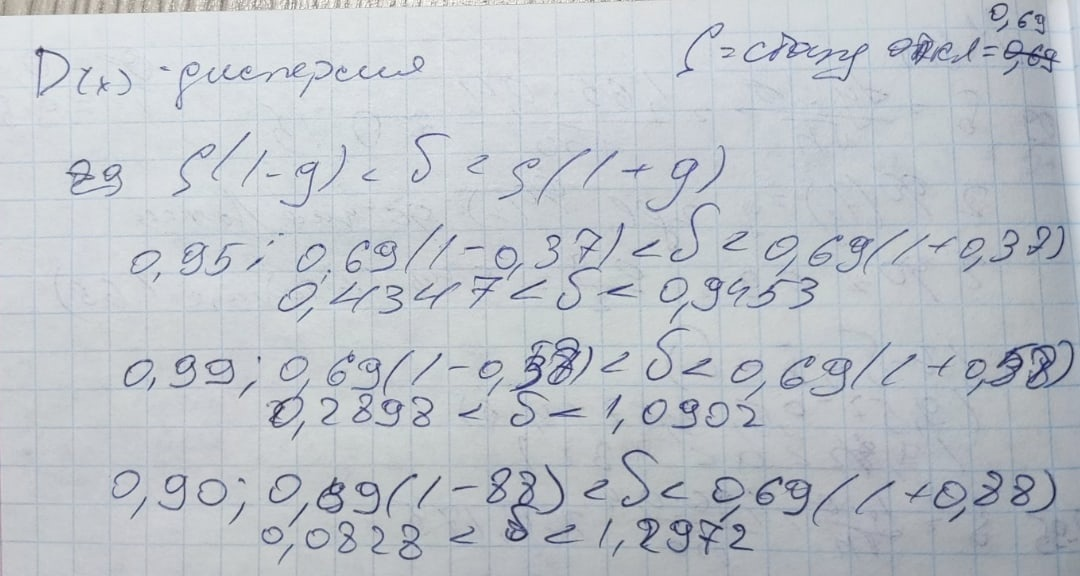 D(x) - дисперсия
S = станд откл = 0,69
S(1-q) < δ < S(1+q)
0,95; 0,69(1-0,37) < δ < 0,69(1+0,37)
0,4347 < δ < 0,9453
0,99; 0,69(1-0,58) < δ < 0,69(1+0,58)
0,2898 < δ < 1,0902
0,90; 0,69(1-88) < δ < 0,69(1+0,88)
0,0828 < δ < 1,2972